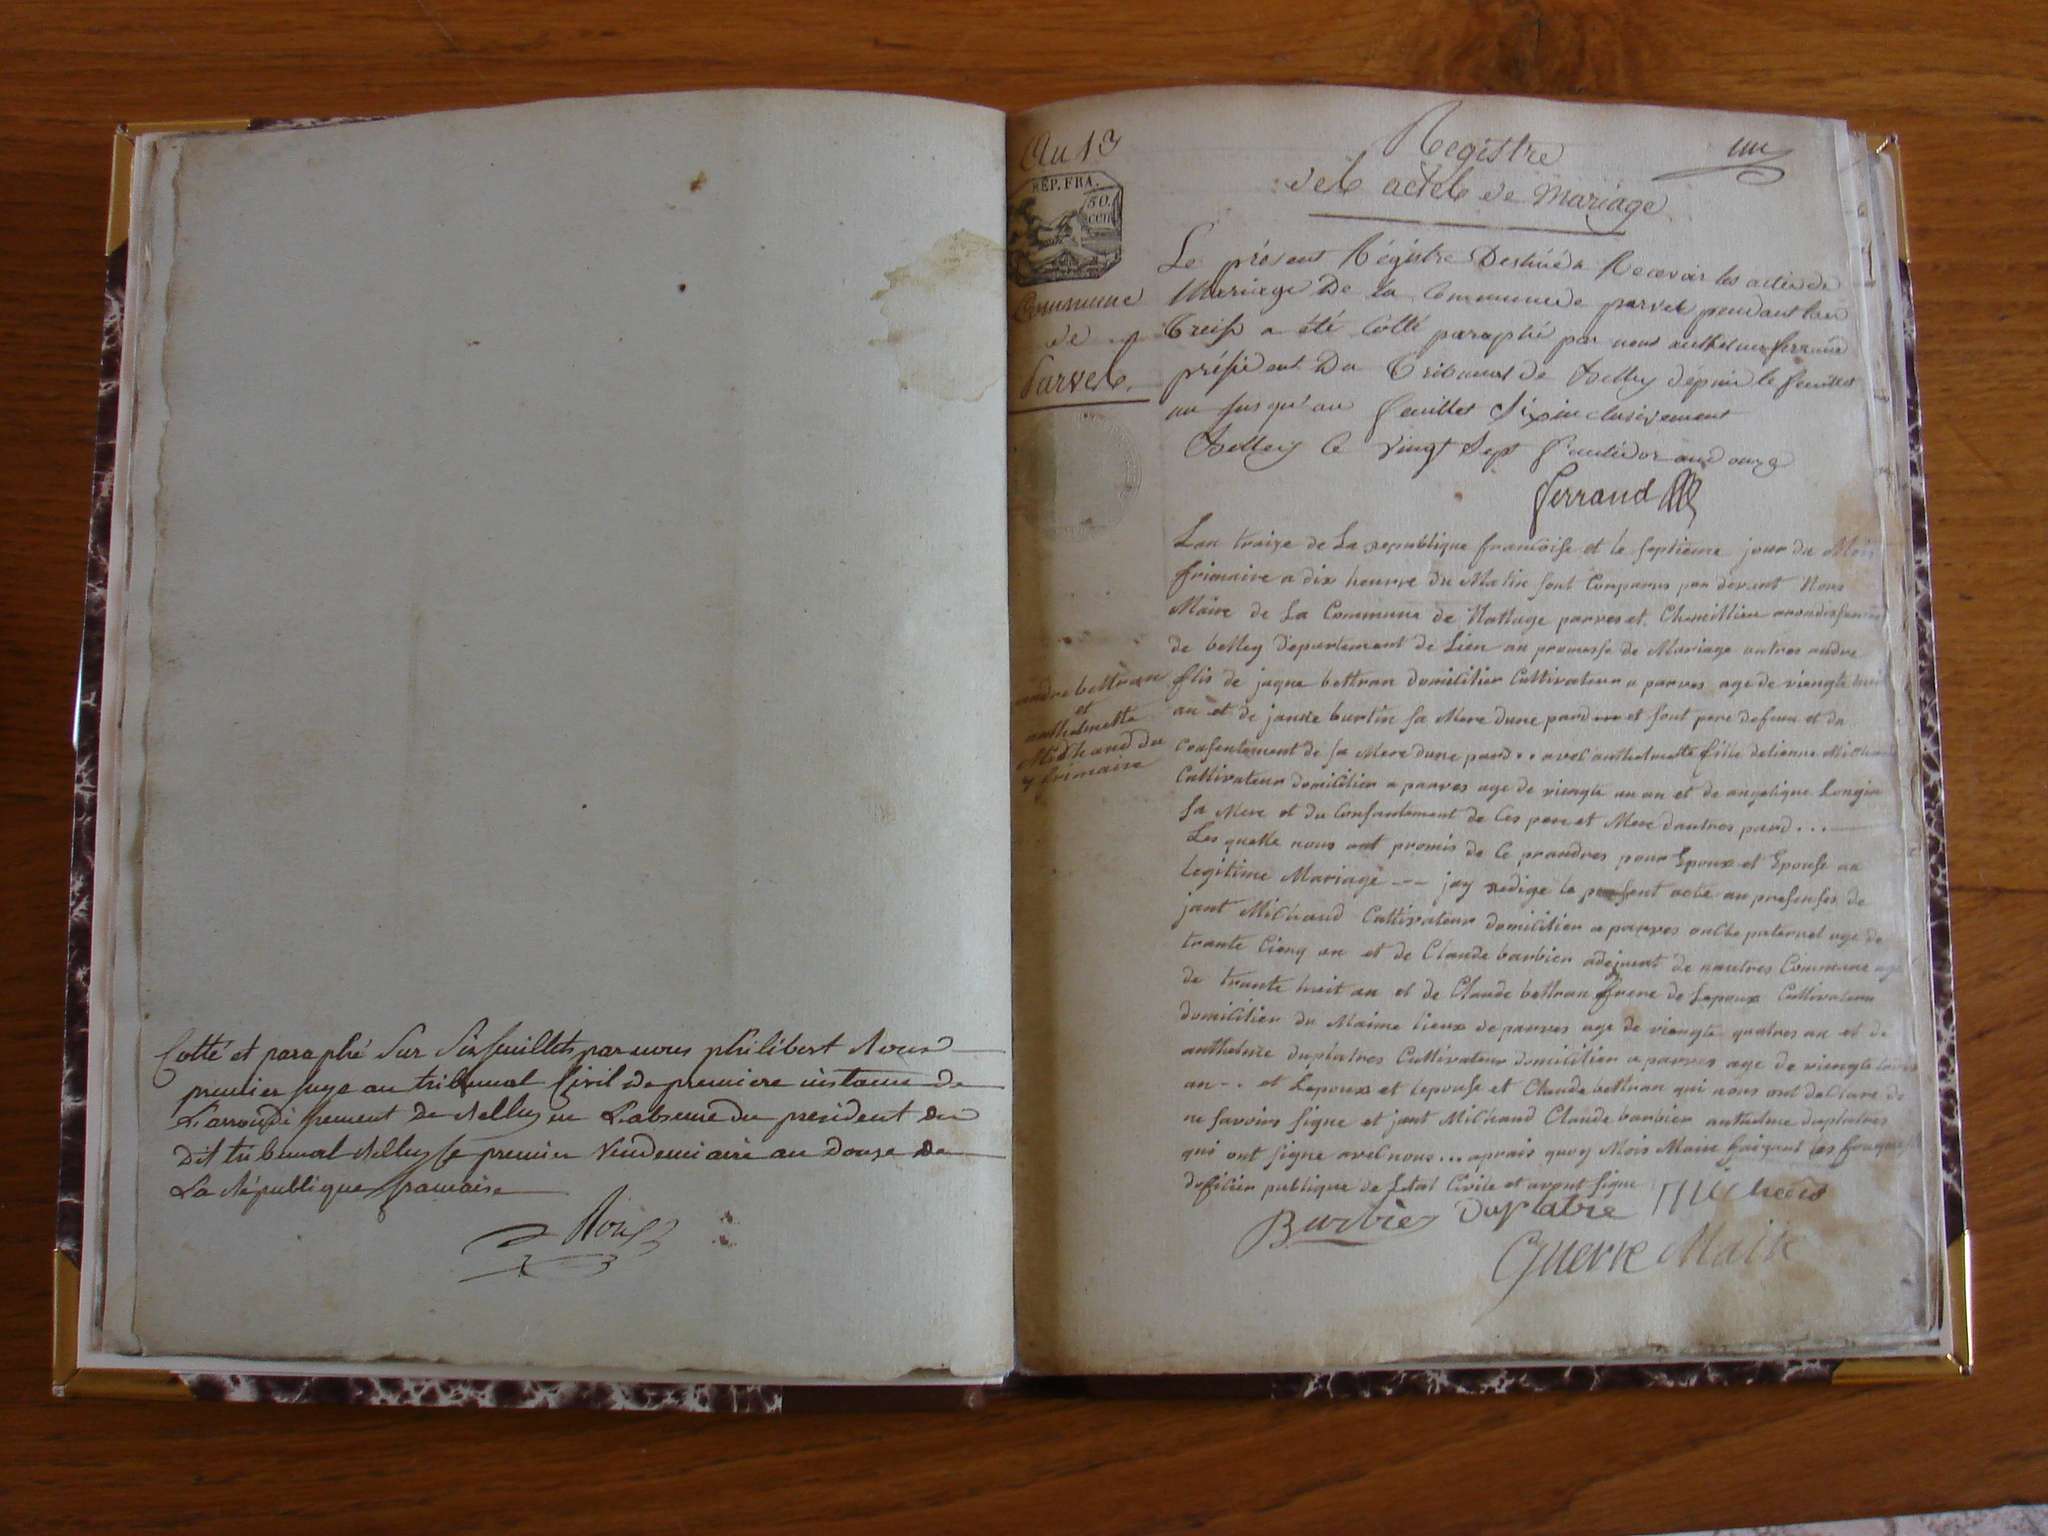 Cotté et paraphé sur six feuillets par nous philibert Roux
premier juge au tribunal Civil de premiere instance de
L'arrondissement de Belley en L'absence du president du
Dit tribunal Belley le premier Vendemiaire an douze de
La République francaise
Roux
An 13
REP. FRA.
50.
cen
Commune
de
Parves
un
Registre
des actes de Mariage
Le présent Régistre Destiné à Recevoir les actes de
Mariage De la Commune de parves pendant lan
Treize a été Côtté paraphé par nous anthelme ferrand
président Du Tribunal de Belley dépuis le feuillet
un jusqu'au feuillet Six inclusivement
Belley le vingt Sept fructidor an douze
ferrand
andre bettran
et
anthelmette
Michaud du
7 frimaire
Lan traize de La republique francoise et le septieme jour du Mois
frimaire a dix heurre du Matin sont Comparus par devant Nous
Maire de La Commune de Nattage parves et Chemillieu arondissement
de belley Departement de Lien au promesse de Mariage antres andre
flis de jaque bettran domicilier Cultivateur a parves age de viengte huit
an et de janne burtin sa Mere dune pard et sont pere defeun et du
Consentement de sa Mere dune pard .. avec anthelmette fille detienne Michaud
Cultivateur domicilier a parves age de viengte un an et de angelique Longin
sa Mere et du Consantement de Ces pere et Mere dautres pard ...
Les quelle nous ont promis de Ce prandres pour Epoux et Epouse an
Legitime Mariage -- jay redige le present acte an presenses de
jant Michaud Cultivateur domicilier a parves oncle paternel age de
trante Cienq an et de Claude barbier adejoint de nautres Commune age
de trante huit an et de Claude bettran frere de Lepoux Cultivateur
domicilier du Maime lieux de parves age de viengte quatres an et de
anthelme duplatres Cultivateur domicilier a parves age de viengte trois
an -- et Lepoux et lepouse et Claude bettran qui nous ont declare de
ne savoirs signe et jant Michaud Claude barbier anthelme duplatres
qui ont signe avec nous ... aprais quoy Mois Maire faisant les
doficier publique de Letat Civile et avont signe
Barbier Duplatre Michaud
Guerre Maire